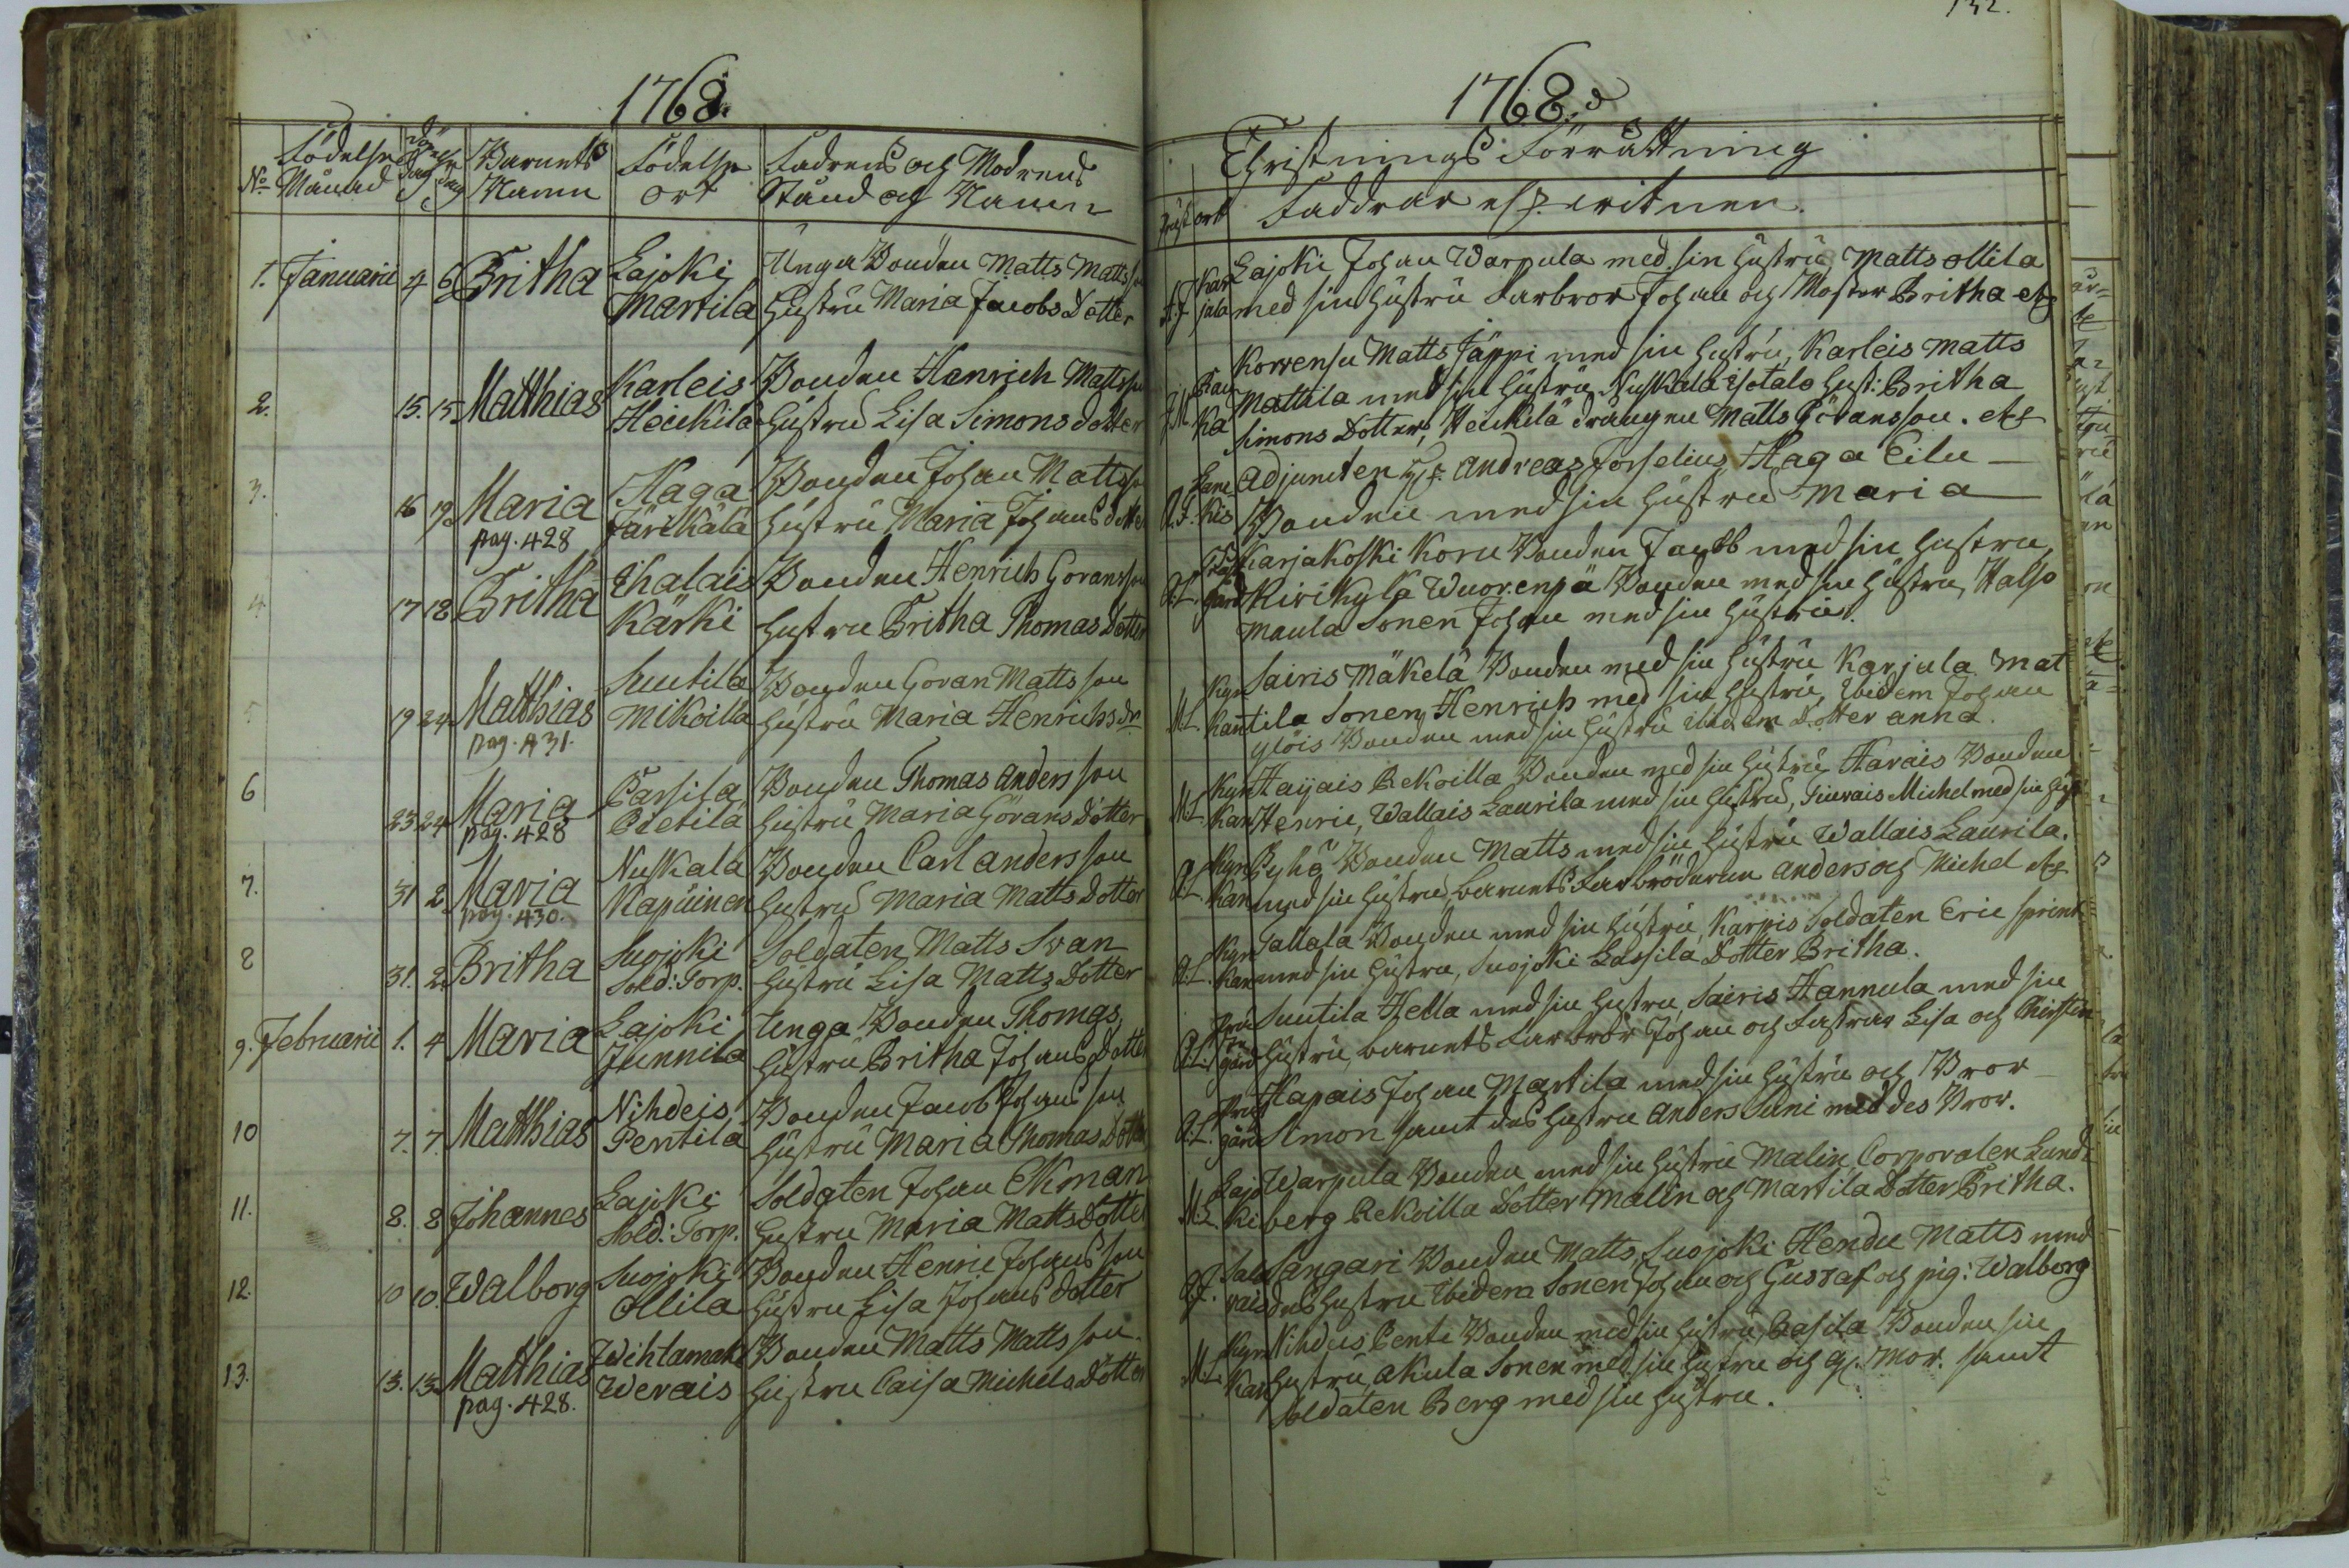 1768.
No Födelse Månad Dag Döpelse Dag Barnets Namn Födelse Ort Fadrens och Modrens Stånd och Namn
1. Januarii 4 6 Britha Lajoki Martila Unga Bonden Matts Mattsson
Hustru Maria Jacobs Dotter
2. 15. 15. Matthias Karleis Heickilä Bonden Hanrich Mattsson
Hustru Lisa Simons dotter
3. 16 19. Maria Haga Järikälä Bonden Johan Mattsson
pag. 428 Hustru Maria Johans dotter
4. 17 18 Britha Ihalais Kärki Bonden Henrich Goransson
Hustru Britha Thomas Dotter
5 19 24 Matthias Suutila Mikoilla Bonden Goran Mattsson
pag. 431. Hustru Maria Henrichs dr.
6 23 24 Maria Parsila Pietilä Bonden Thomas Andersson
pag. 428 Hustru Maria Görans Dotter
7. 31 2 Maria Nuskala Kapuinen Bonden Carl Andersson
pag. 430. Hustru Maria Matts Dotter
8 31. 2. Britha Suojoki Sold: Torp. Soldaten Matts Svan
Hustru Lisa Matts Dotter
9. Februarii 1. 4 Maria Lajoki Junnila Unga Bonden Thomas
Hustru Britha Johans Dotter
10 7. 7. Matthias Nihdeis Pentila Bonden Jacob Johansson
Hustru Maria Thomas Dotter
11. 8. 8 Johannes Lajoki Sold: Torp. Soldaten Johan Ekman
Hustru Maria Matts Dotter
12. 10 10. Walborg Suojoki Ollila Bonden Henric Johansson
Hustru Lisa Johans dotter
13. 13. 13. Matthias Wihlamak Werais Bonden Matts Mattsson.
pag. 428. Hustru Caisa Michels Dotter
132.
1768.
Christnings Förrättning
Präst ort Faddrar eller witnen.
A.F. Kar Lajoki Johan Warpula med sin Hustru, Matts Ollila
jula med sin Hustru Farbror Johan och Moster Britha etc
J.M. Korvensu Matts Jäppi med sin hustru, Karleis Matts
Mattila med sin Hustru Nuskala Isotalo Hust: Britha
Ka Simons Dotter, Heickilä drängen Matts Göransson. etc
Adjuncten Hr. Andreas Forselius Haga Eilu
A.F. kis Bonden med sin Hustru Maria
Karjakoski Koru Bonden Jacob med sin hustru,
A.L. gård Kirikylä Wuorenpä Bonden med sin Hustru, Halso
Maula Sonen Johan med sin Hustru.
Kyr Sairis Mäkelä Bonden med sin Hustru Karjula Mat
M.L. kan tila Sonen Henrich med sin Hustru, Ibidem Johan
Ylöis Bonden med sin Hustru Ibidem Dotter Anna.
Kyr Haijais Rekoilla Bonden med sin hustru Harais Bonden
M.L. kan Henric, Wallais Laurila med sin Hustru, Tinrais Michel med sin Hust
Kyr Pyhö Bonden Matts med sin Hustru Wallais Laurila.
A.L. kan med sin Hustru, barnets Farbröderne Anders och Michel etc
Kyr Tallala Bonden med sin Hustru, Karpis Soldaten Eric Sprink
A.L. kan med sin Hustru, Suojoki Lassila Dotter Britha.
Prä Suutila Hella med sin hustru, Sairis Hannula med sin
A.L. gård Hustru, barnets Farbror Johan och Fastrar Lisa och Chirstin
Präst Hapais Johan Martila med sin Hustru och Bror
A.L. gård Simon samt des Hustru Anders Suni med des Bror.
Lajo Warpula Bonden med sin Hustru Malin, Corporalen Lund
M.L. ki berg Rekoilla Dotter Malin och Martila Dotter Britha.
Sala Sangari Bonden Matts, Suojoki Hendu Matts med
A.F. rais des Hustru Ibidem Sonen Johan och Gustaf och pig: Walborg
Kyr Nihdeis Penti Bonden med sin Hustru, Pasila Bonden sin
M.L. kan Hustru, Akula Sonen med sin Hustru och Gl. Mor. samt
Soldaten Berg med sin Hustru.